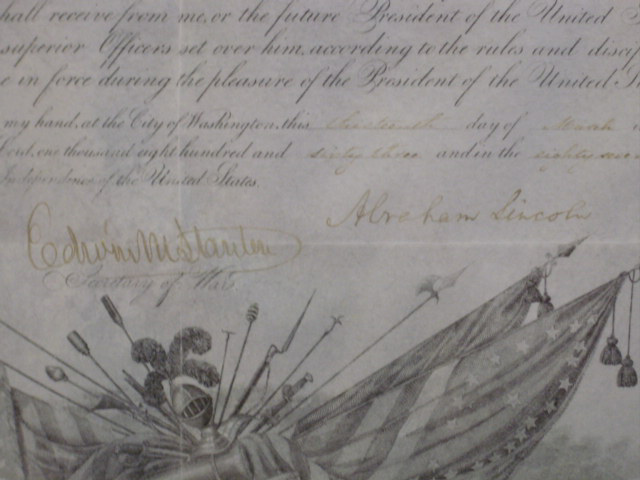 hall receive from me, or the future President of the United
superior Officers set over him, according to the rules and disci
e in force during the pleasure of the President of the United St
my hand, at the City of Washington, this thirteenth day of March
Lord, one thousand eight hundred and sixty three and in the eighty seven
Independence of the United States.
Abraham Lincoln
Edwin M Stanton
Secretary of War.